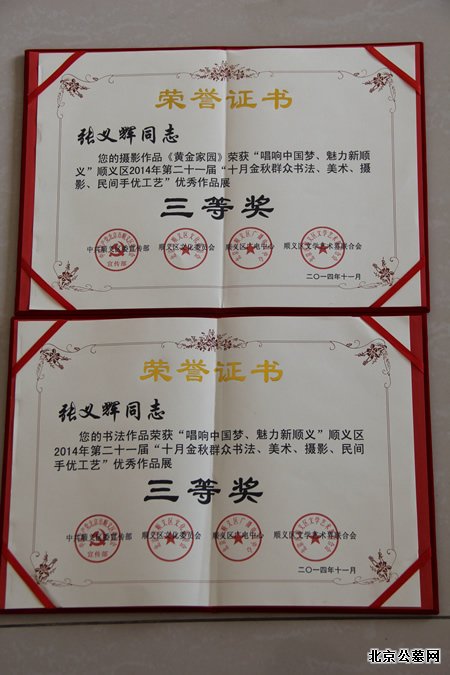 荣誉证书
张义辉同志
您的摄影作品《黄金家园》荣获“唱响中国梦、魅力新顺
义”顺义区2014年第二十一届“十月金秋群众书法、美术、摄
影、民间手优工艺”优秀作品展
三等奖
中共顺义区委宣传部 顺义区文化委员会 顺义区广电中心 顺义区文学艺术界联合会
宣传部
二〇一四年十一月
荣誉证书
张义辉同志
您的书法作品荣获“唱响中国梦、魅力新顺义”顺义区
2014年第二十一届“十月金秋群众书法、美术、摄影、民间
手优工艺”优秀作品展
三等奖
中共顺义区委宣传部 顺义区文化委员会 顺义区广电中心 顺义区文学艺术界联合会
宣传部
二〇一四年十一月
北京公墓网